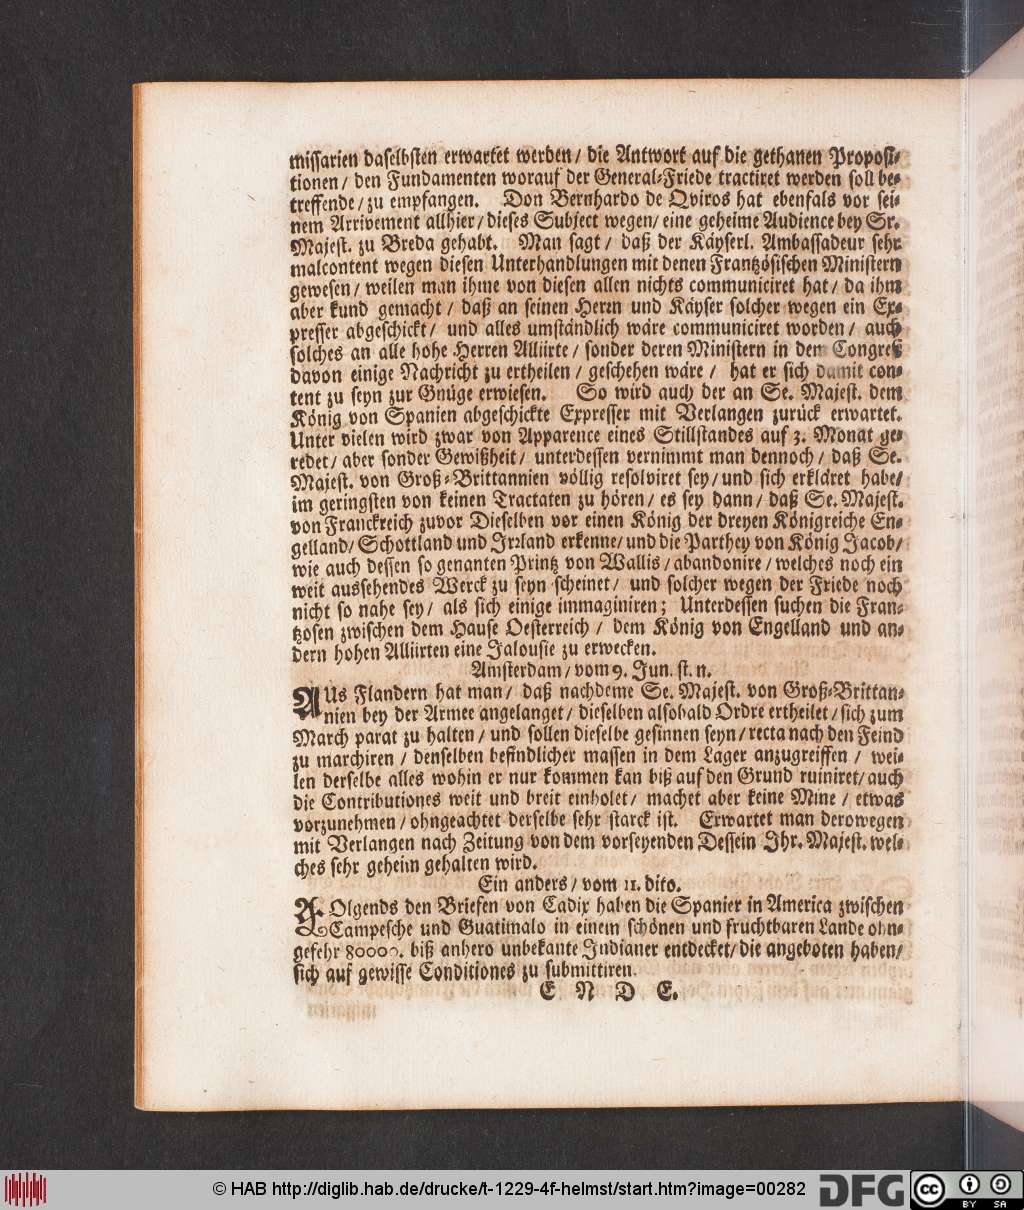 missarien daselbsten erwartet werden / die Antwort auf die gethanen Proposi-
tionen / den Fundamenten worauf der General-Friede tractiret werden soll be-
treffende / zu empfangen. Don Bernhardo de Qviros hat ebenfals vor sei-
nem Arrivement allhier / dieses Subject wegen / eine geheime Audience bey Sr.
Majest. zu Breda gehabt. Man sagt / daß der Käyserl. Ambassadeur sehr
malcontent wegen diesen Unterhandlungen mit denen Frantzösischen Ministern
gewesen / weilen man ihme von diesen allen nichts communiciret hat / da ihm
aber kund gemacht / daß an seinen Herrn und Käyser solcher wegen ein Ex-
presser abgeschickt / und alles umständlich wäre communiciret worden / auch
solches an alle hohe Herren Alliirte / sonder deren Ministern in dem Congreß
davon einige Nachricht zu ertheilen / geschehen wäre / hat er sich damit con-
tent zu seyn zur Gnüge erwiesen. So wird auch der an Se. Majest. dem
König von Spanien abgeschickte Expresser mit Verlangen zurück erwartet.
Unter vielen wird zwar von Apparence eines Stillstandes auf 3. Monat ge-
redet / aber sonder Gewißheit / unterdessen vernimmt man dennoch / daß Se.
Majest. von Groß-Brittannien völlig resolviret sey / und sich erkläret habe /
im geringsten von keinen Tractaten zu hören / es sey dann / daß Se. Majest.
von Franckreich zuvor Dieselben vor einen König der dreyen Königreiche En-
gelland / Schottland und Irrland erkenne / und die Parthey von König Jacob /
wie auch dessen so genanten Printz von Wallis / abandonire / welches noch ein
weit aussehendes Werck zu seyn scheinet / und solcher wegen der Friede noch
nicht so nahe sey / als sich einige immaginiren; Unterdessen suchen die Fran-
tzosen zwischen dem Hause Oesterreich / dem König von Engelland und an-
dern hohen Alliirten eine Jalousie zu erwecken.
Amsterdam / vom 9. Jun. st. n.
AUs Flandern hat man / daß nachdeme Se. Majest. von Groß-Brittan-
nien bey der Armee angelanget / dieselben alsobald Ordre ertheilet / sich zum
March parat zu halten / und sollen dieselbe gesinnen seyn / recta nach den Feind
zu marchiren / denselben befindlicher massen in dem Lager anzugreiffen / wei-
len derselbe alles wohin er nur kommen kan biß auf den Grund ruiniret / auch
die Contributiones weit und breit einholet / machet aber keine Mine / etwas
vorzunehmen / ohngeachtet derselbe sehr starck ist. Erwartet man derowegen
mit Verlangen nach Zeitung von dem vorseyenden Dessein Ihr. Majest. wel-
ches sehr geheim gehalten wird.
Ein anders / vom 11. dito.
FOlgends den Briefen von Cadix haben die Spanier in America zwischen
Campesche und Guatimalo in einem schönen und fruchtbaren Lande ohn-
gefehr 80000. biß anhero unbekante Indianer entdecket / die angeboten haben /
sich auf gewisse Conditiones zu submittiren.
E N D E.
© HAB http://diglib.hab.de/drucke/t-1229-4f-helmst/start.htm?image=00282
DFG
cc
BY SA